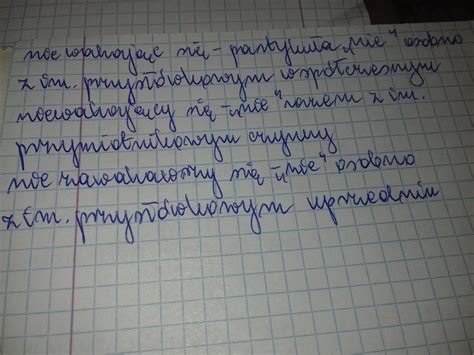 nie wahając się - partykuła „nie" osobno
z im. przysłówkowym współczesnym
niewahający się - „nie" razem z im.
przymiotnikowym czynny
nie zawahawszy się - „nie" osobno
z im. przysłówkowym uprzednim